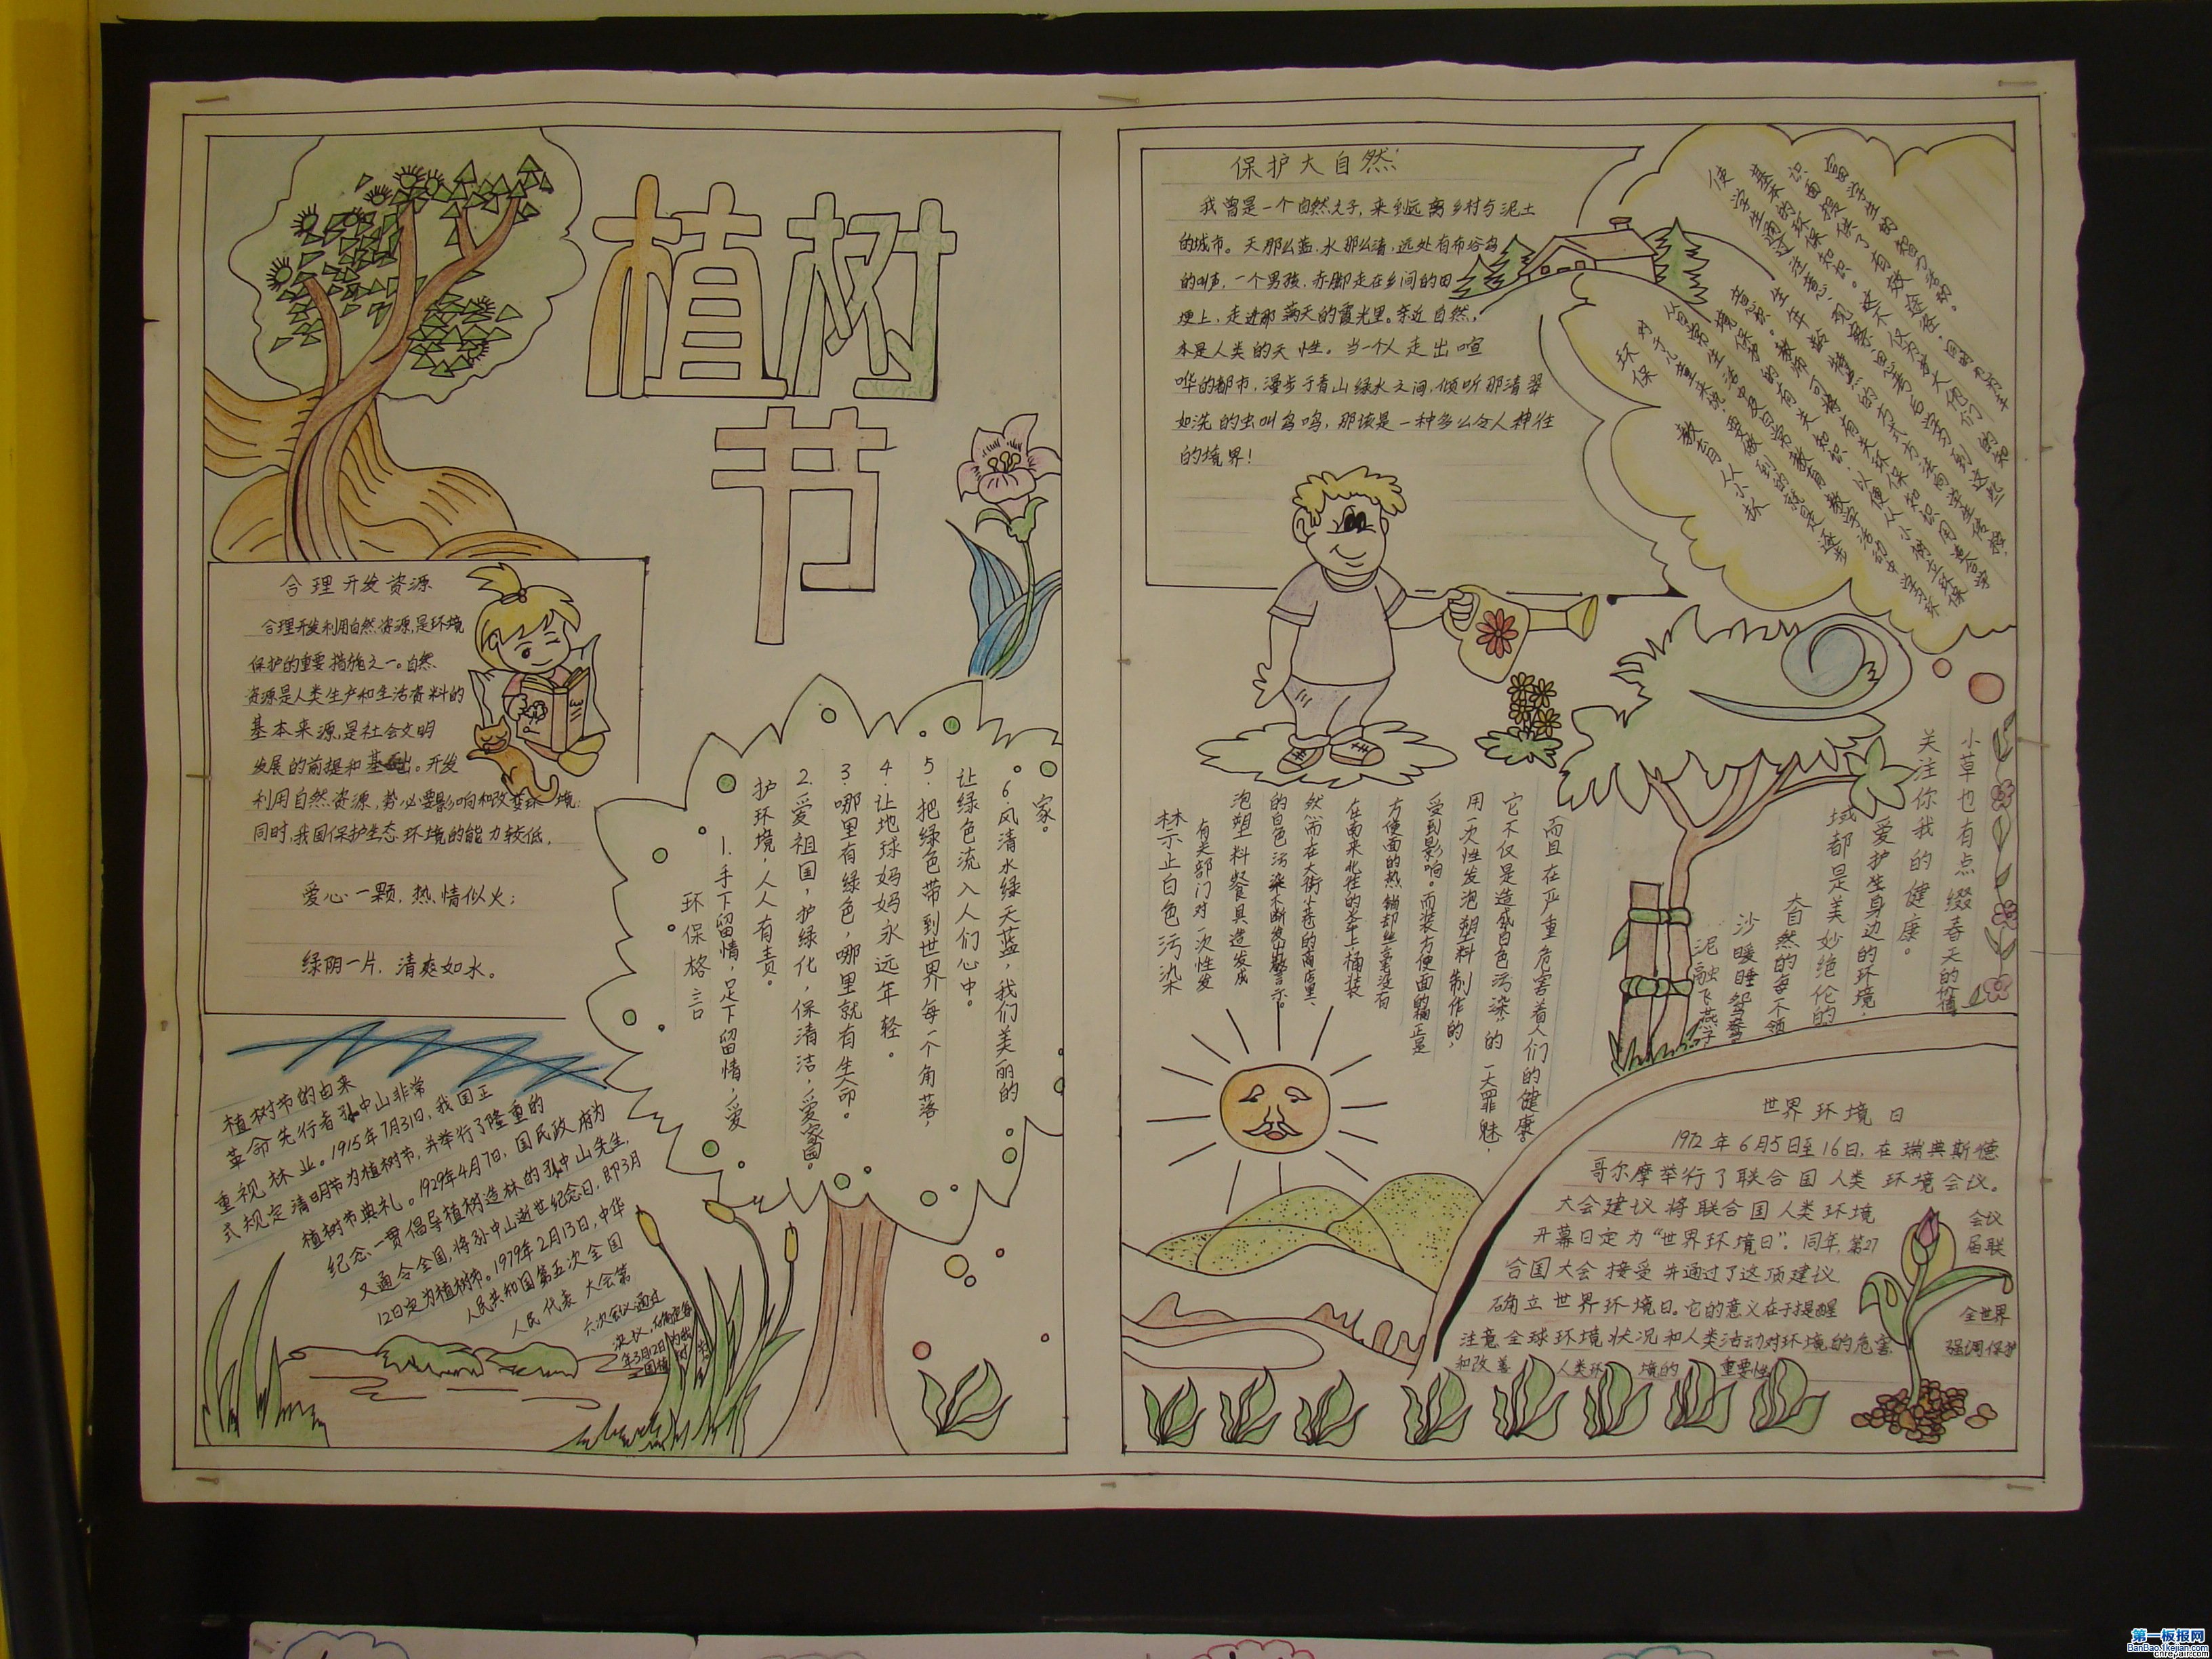 植树
节
合理开发资源
合理开发利用自然资源,是环境
保护的重要措施之一。自然
资源是人类生产和生活资料的
基本来源,是社会文明
发展的前提和基础。开发
利用自然资源,势必要影响和改变环境;
同时,我国保护生态环境的能力较低,
爱心一颗,热情似火;
绿阴一片,清爽如水。
植树节的由来
革命先行者孙中山非常
重视林业。1915年7月31日,我国正
式规定清明节为植树节,并举行了隆重的
植树节典礼。1929年4月7日,国民政府为
纪念一贯倡导植树造林的孙中山先生,
又通令全国,将孙中山逝世纪念日,即3月
12日定为植树节。1979年2月13日,中华
人民共和国第五次全国
人民代表大会第
六次会议通过
环保格言
1.手下留情,足下留情,爱
护环境,人人有责。
2.爱祖国,护绿化,保清洁,爱家园。
3.哪里有绿色,哪里就有生命。
4.让地球妈妈永远年轻。
5.把绿色带到世界每一个角落,
让绿色流入人们心中。
6.风清水绿天蓝,我们美丽的
家。
保护大自然
我曾是一个自然之子,来到远离乡村与泥土
的城市。天那么蓝,水那么清,远处有布谷鸟
的叫声,一个男孩,赤脚走在乡间的田
埂上,走进那满天的霞光里。亲近自然,
本是人类的天性。当一个人走出喧
哗的都市,漫步于青山绿水之间,倾听那清翠
如洗的虫叫鸟鸣,那该是一种多么令人神往
的境界!
环保
教育从小抓
对于儿童来说,要做到的就是逐步
小草也有点缀春天的价值
关注你我的健康。
爱护生身边的环境,
域都是美妙绝伦的
大自然的每个领
沙暖睡鸳鸯
泥融飞燕子
禁止白色污染
有关部门对一次性发
泡塑料餐具造成
的白色污染不断发出警示。
然而在大街小巷的商店里、
在南来北往的列车上,桶装
方便面的热销却丝毫没有
受到影响。而装方便面的桶正是
用一次性发泡塑料制作的,
它不仅是造成白色污染的一大罪魁,
而且在严重危害着人们的健康
世界环境日
1972年6月5日至16日,在瑞典斯德
哥尔摩举行了联合国人类环境会议。
大会建议将联合国人类环境会议
开幕日定为“世界环境日”。同年,第27届联
合国大会接受并通过了这项建议
确立世界环境日。它的意义在于提醒全世界
注意全球环境状况和人类活动对环境的危害 强调保护
和改善人类环境的重要性
第一板报网
BanBao.1kejian.com
cnrepair.com